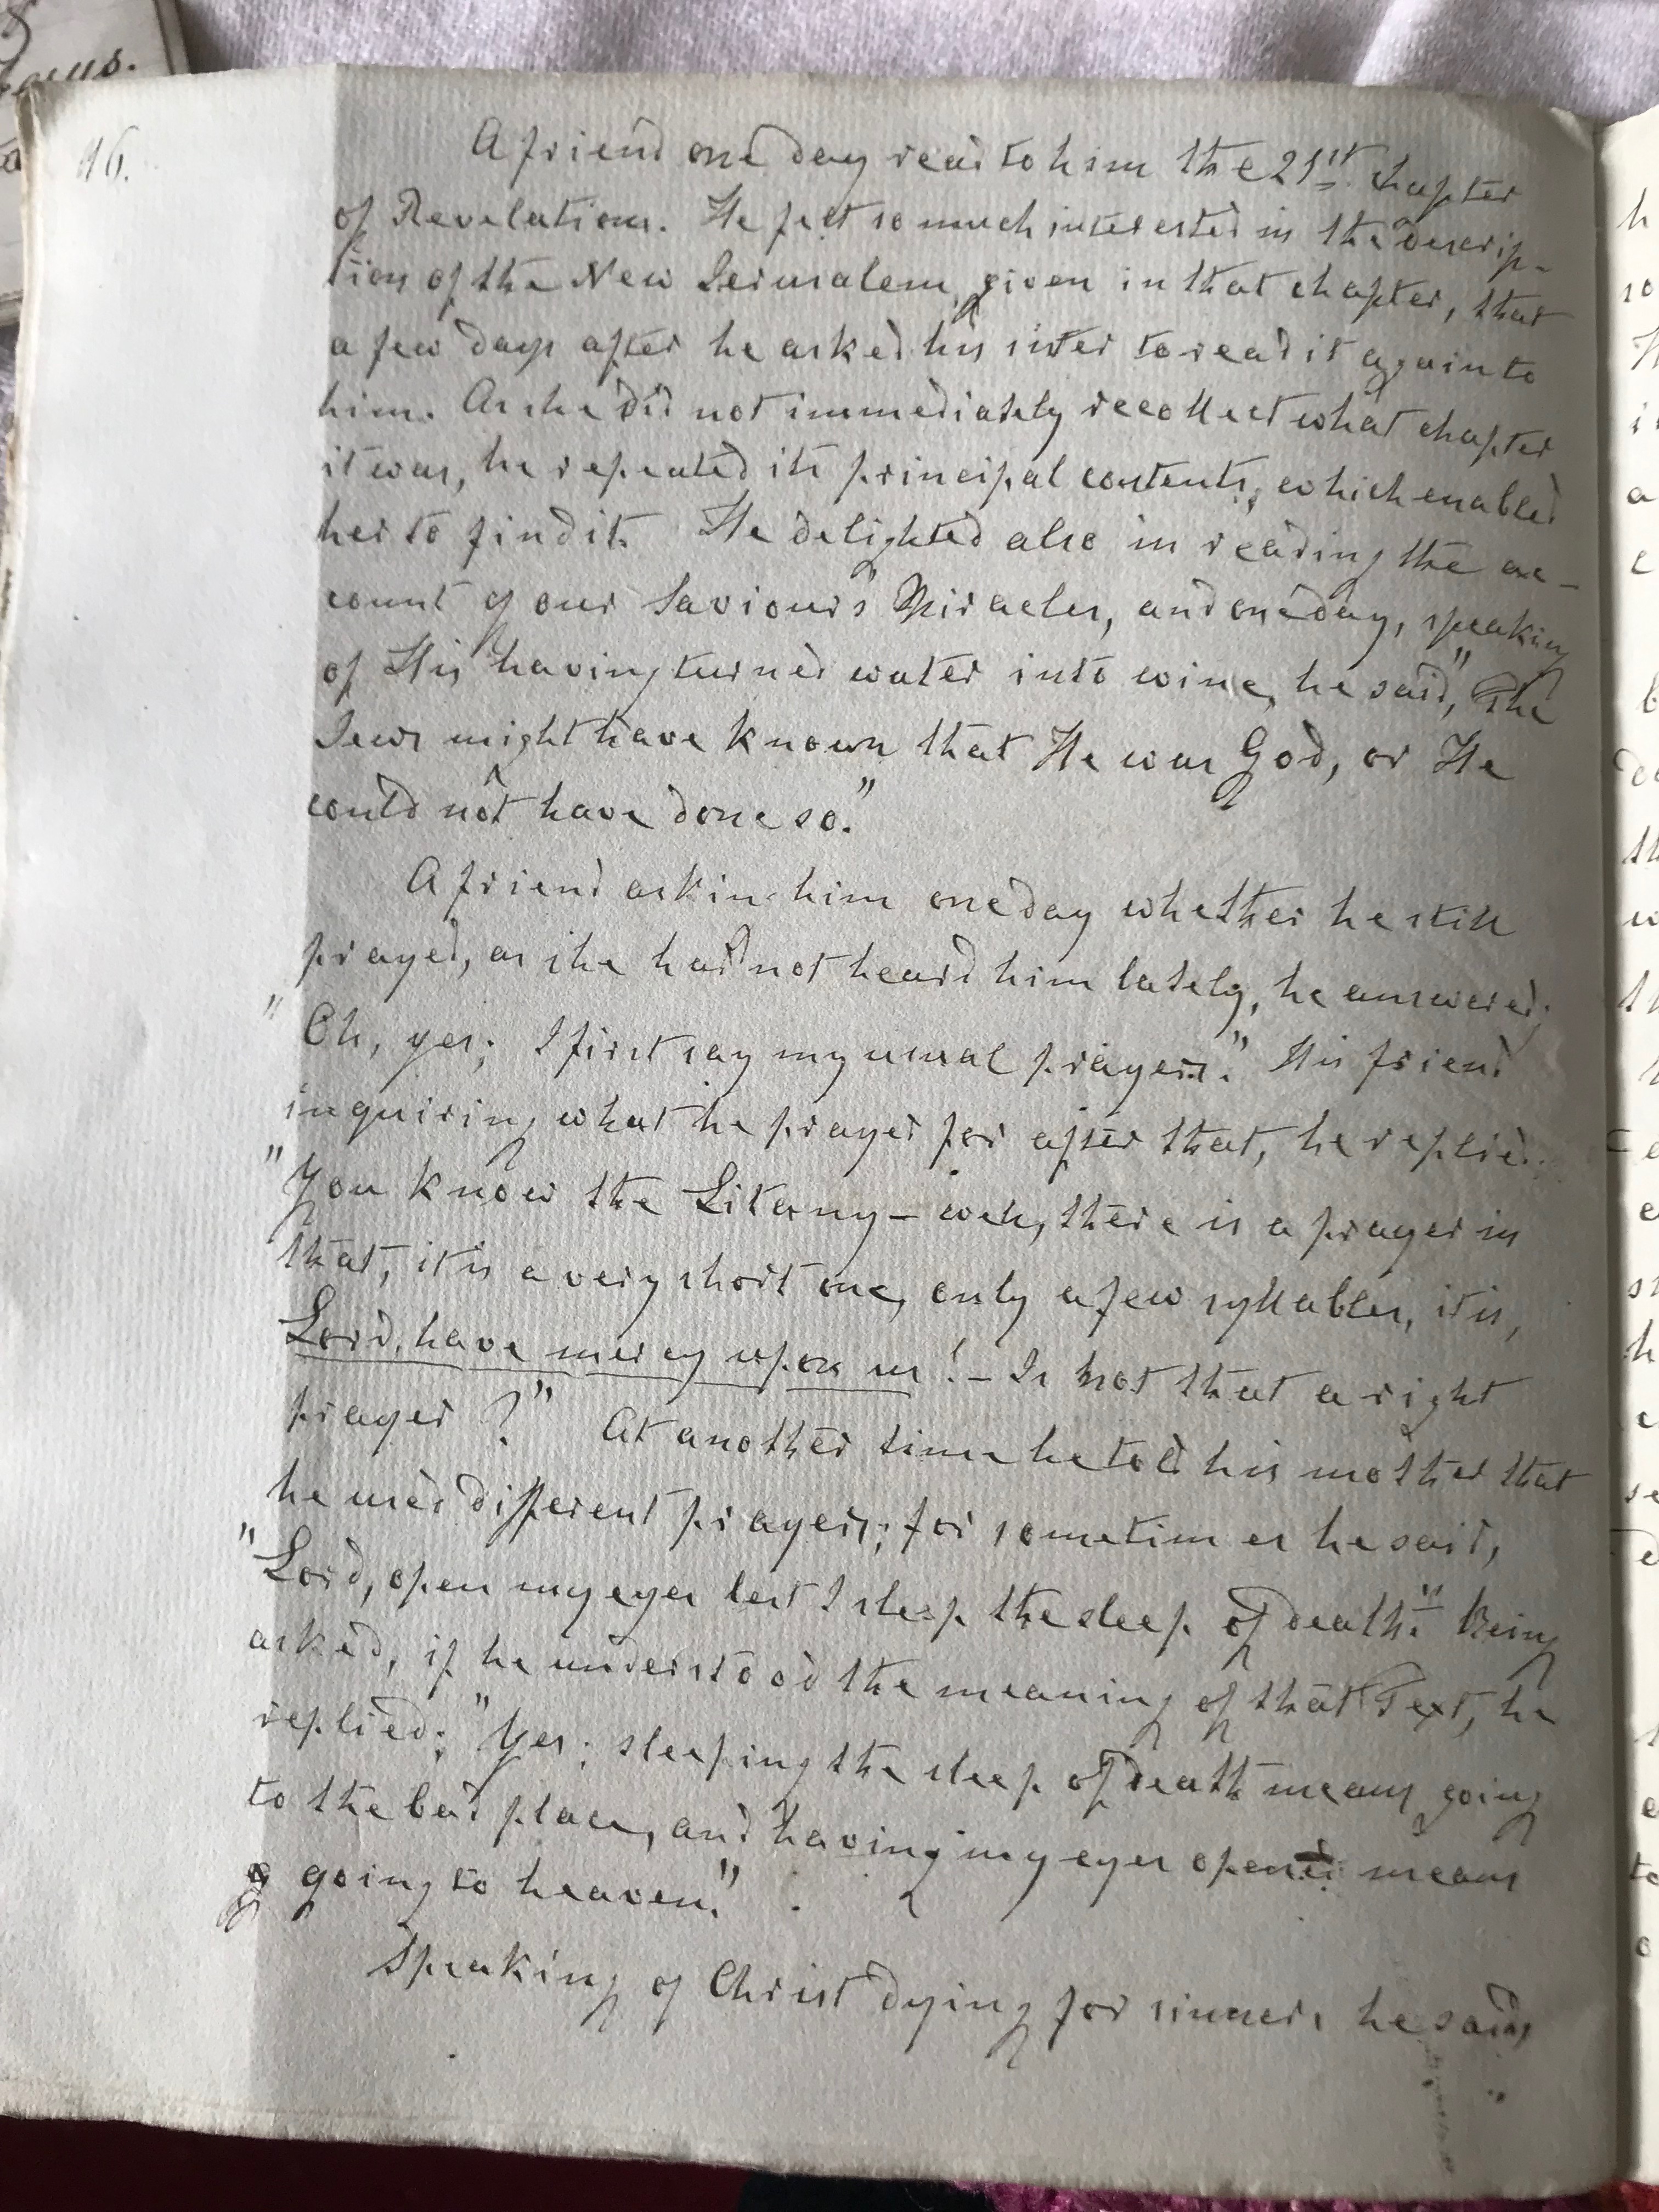 16.
A friend one day read to him the 21st chapter
of Revelations. He felt so much interested in the descrip-
tion of the New Jerusalem, given in that chapter, that
a few days after he asked his sister to read it again to
him. As she did not immediately recollect what chapter
it was, he repeated its principal contents, which enabled
her to find it. He delighted also in reading the ac-
count of our Saviour's Miracles, and one day, speaking
of His having turned water into wine, he said, "The
Jews might have known that He was God, or He
could not have done so."
A friend askin him one day whether he still
prayed, as she had not heard him lately, he answered;
"Oh, yes; I first say my usual prayers." His friend
inquiring what he prayed for after that, he replied.
"You know the Litany – well, there is a prayer in
that, it is a very short one, only a few syllables, it is,
Lord, have mercy upon us! – Is not that a right
prayer?" At another time he told his mother that
he used different prayers; for sometimes he said,
"Lord, open my eyes lest I sleep the sleep of death." Being
asked, if he understood the meaning of that Text, he
replied; "Yes; sleeping the sleep of death means going
to the bad place, and having my eyes opened means
going to heaven."
Speaking of Christ dying for sinners he said,